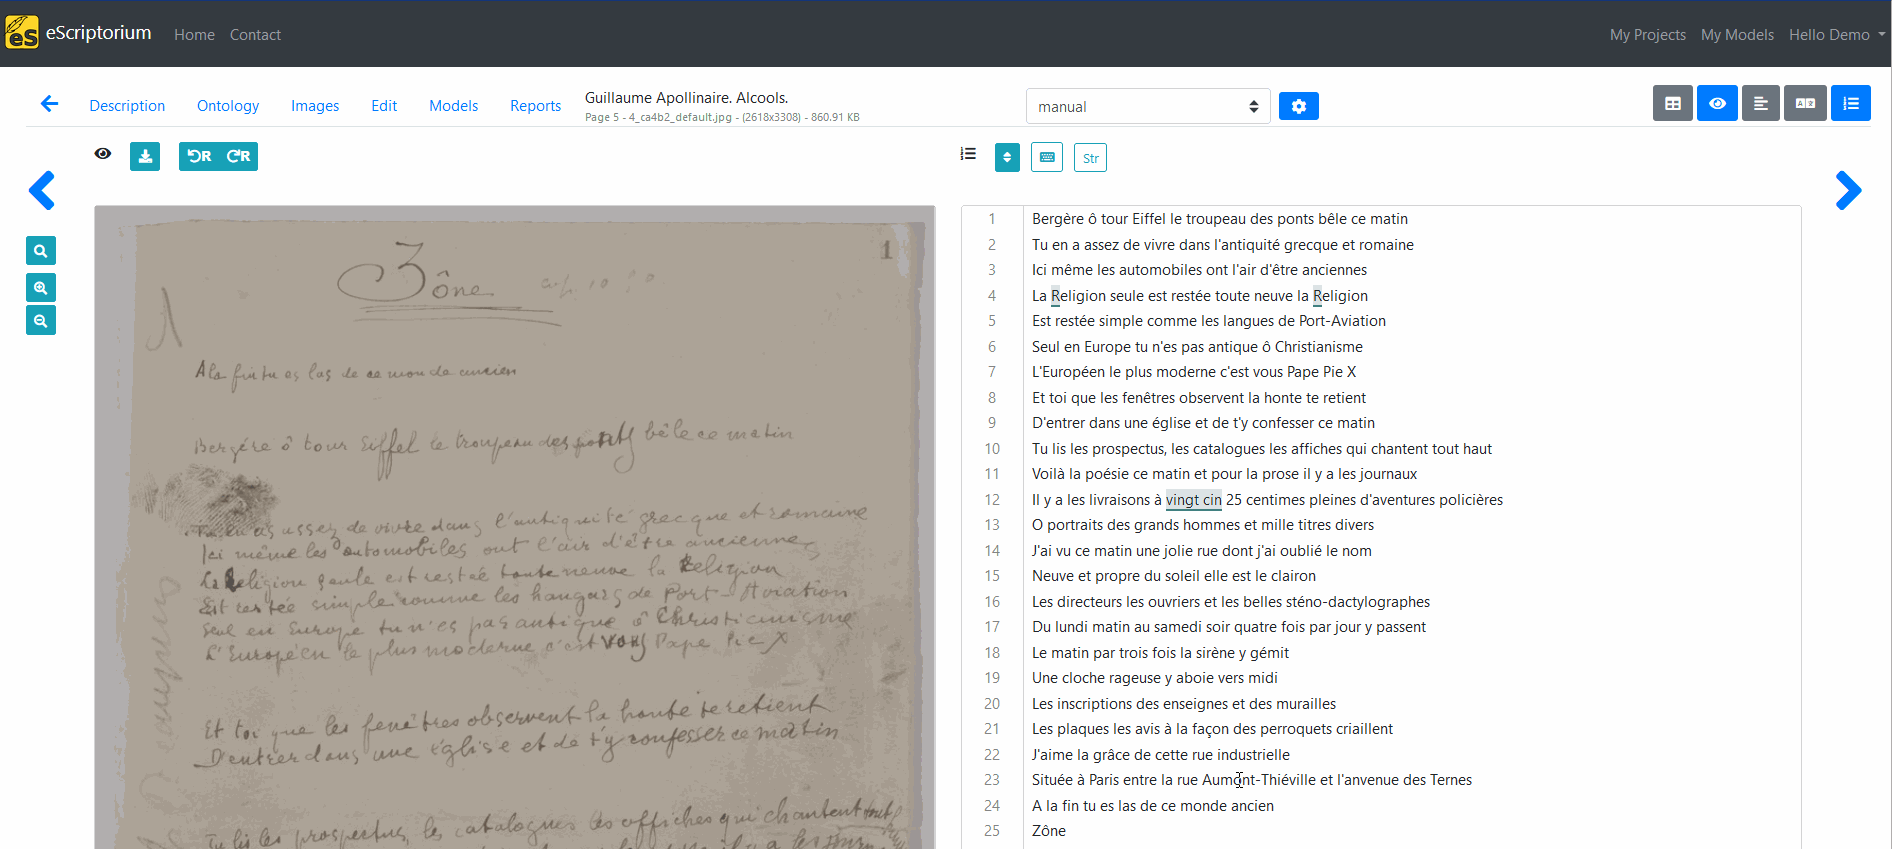 eScriptorium Home Contact My Projects My Models Hello Demo
Description Ontology Images Edit Models Reports
Guillaume Apollinaire. Alcools.
Page 5 - 4_ca4b2_default.jpg - (2618x3308) - 860.91 KB
manual
R R
Str
Zône
1
A la fin tu es las de ce monde ancien
Bergère ô tour Eiffel le troupeau des ponts bêle ce matin
Tu en as assez de vivre dans l'antiquité grecque et romaine
Ici même les automobiles ont l'air d'être anciennes
La Religion seule est restée toute neuve la Religion
Est restée simple comme les hangars de Port-Aviation
Seul en Europe tu n'es pas antique ô Christianisme
L'Européen le plus moderne c'est vous Pape Pie X
Et toi que les fenêtres observent la honte te retient
D'entrer dans une église et de t'y confesser ce matin
Tu lis les prospectus, les catalogues les affiches qui chantent tout
1 Bergère ô tour Eiffel le troupeau des ponts bêle ce matin
2 Tu en a assez de vivre dans l'antiquité grecque et romaine
3 Ici même les automobiles ont l'air d'être anciennes
4 La Religion seule est restée toute neuve la Religion
5 Est restée simple comme les langues de Port-Aviation
6 Seul en Europe tu n'es pas antique ô Christianisme
7 L'Européen le plus moderne c'est vous Pape Pie X
8 Et toi que les fenêtres observent la honte te retient
9 D'entrer dans une église et de t'y confesser ce matin
10 Tu lis les prospectus, les catalogues les affiches qui chantent tout haut
11 Voilà la poésie ce matin et pour la prose il y a les journaux
12 Il y a les livraisons à vingt cin 25 centimes pleines d'aventures policières
13 O portraits des grands hommes et mille titres divers
14 J'ai vu ce matin une jolie rue dont j'ai oublié le nom
15 Neuve et propre du soleil elle est le clairon
16 Les directeurs les ouvriers et les belles sténo-dactylographes
17 Du lundi matin au samedi soir quatre fois par jour y passent
18 Le matin par trois fois la sirène y gémit
19 Une cloche rageuse y aboie vers midi
20 Les inscriptions des enseignes et des murailles
21 Les plaques les avis à la façon des perroquets criaillent
22 J'aime la grâce de cette rue industrielle
23 Située à Paris entre la rue Aumont-Thiéville et l'anvenue des Ternes
24 A la fin tu es las de ce monde ancien
25 Zône